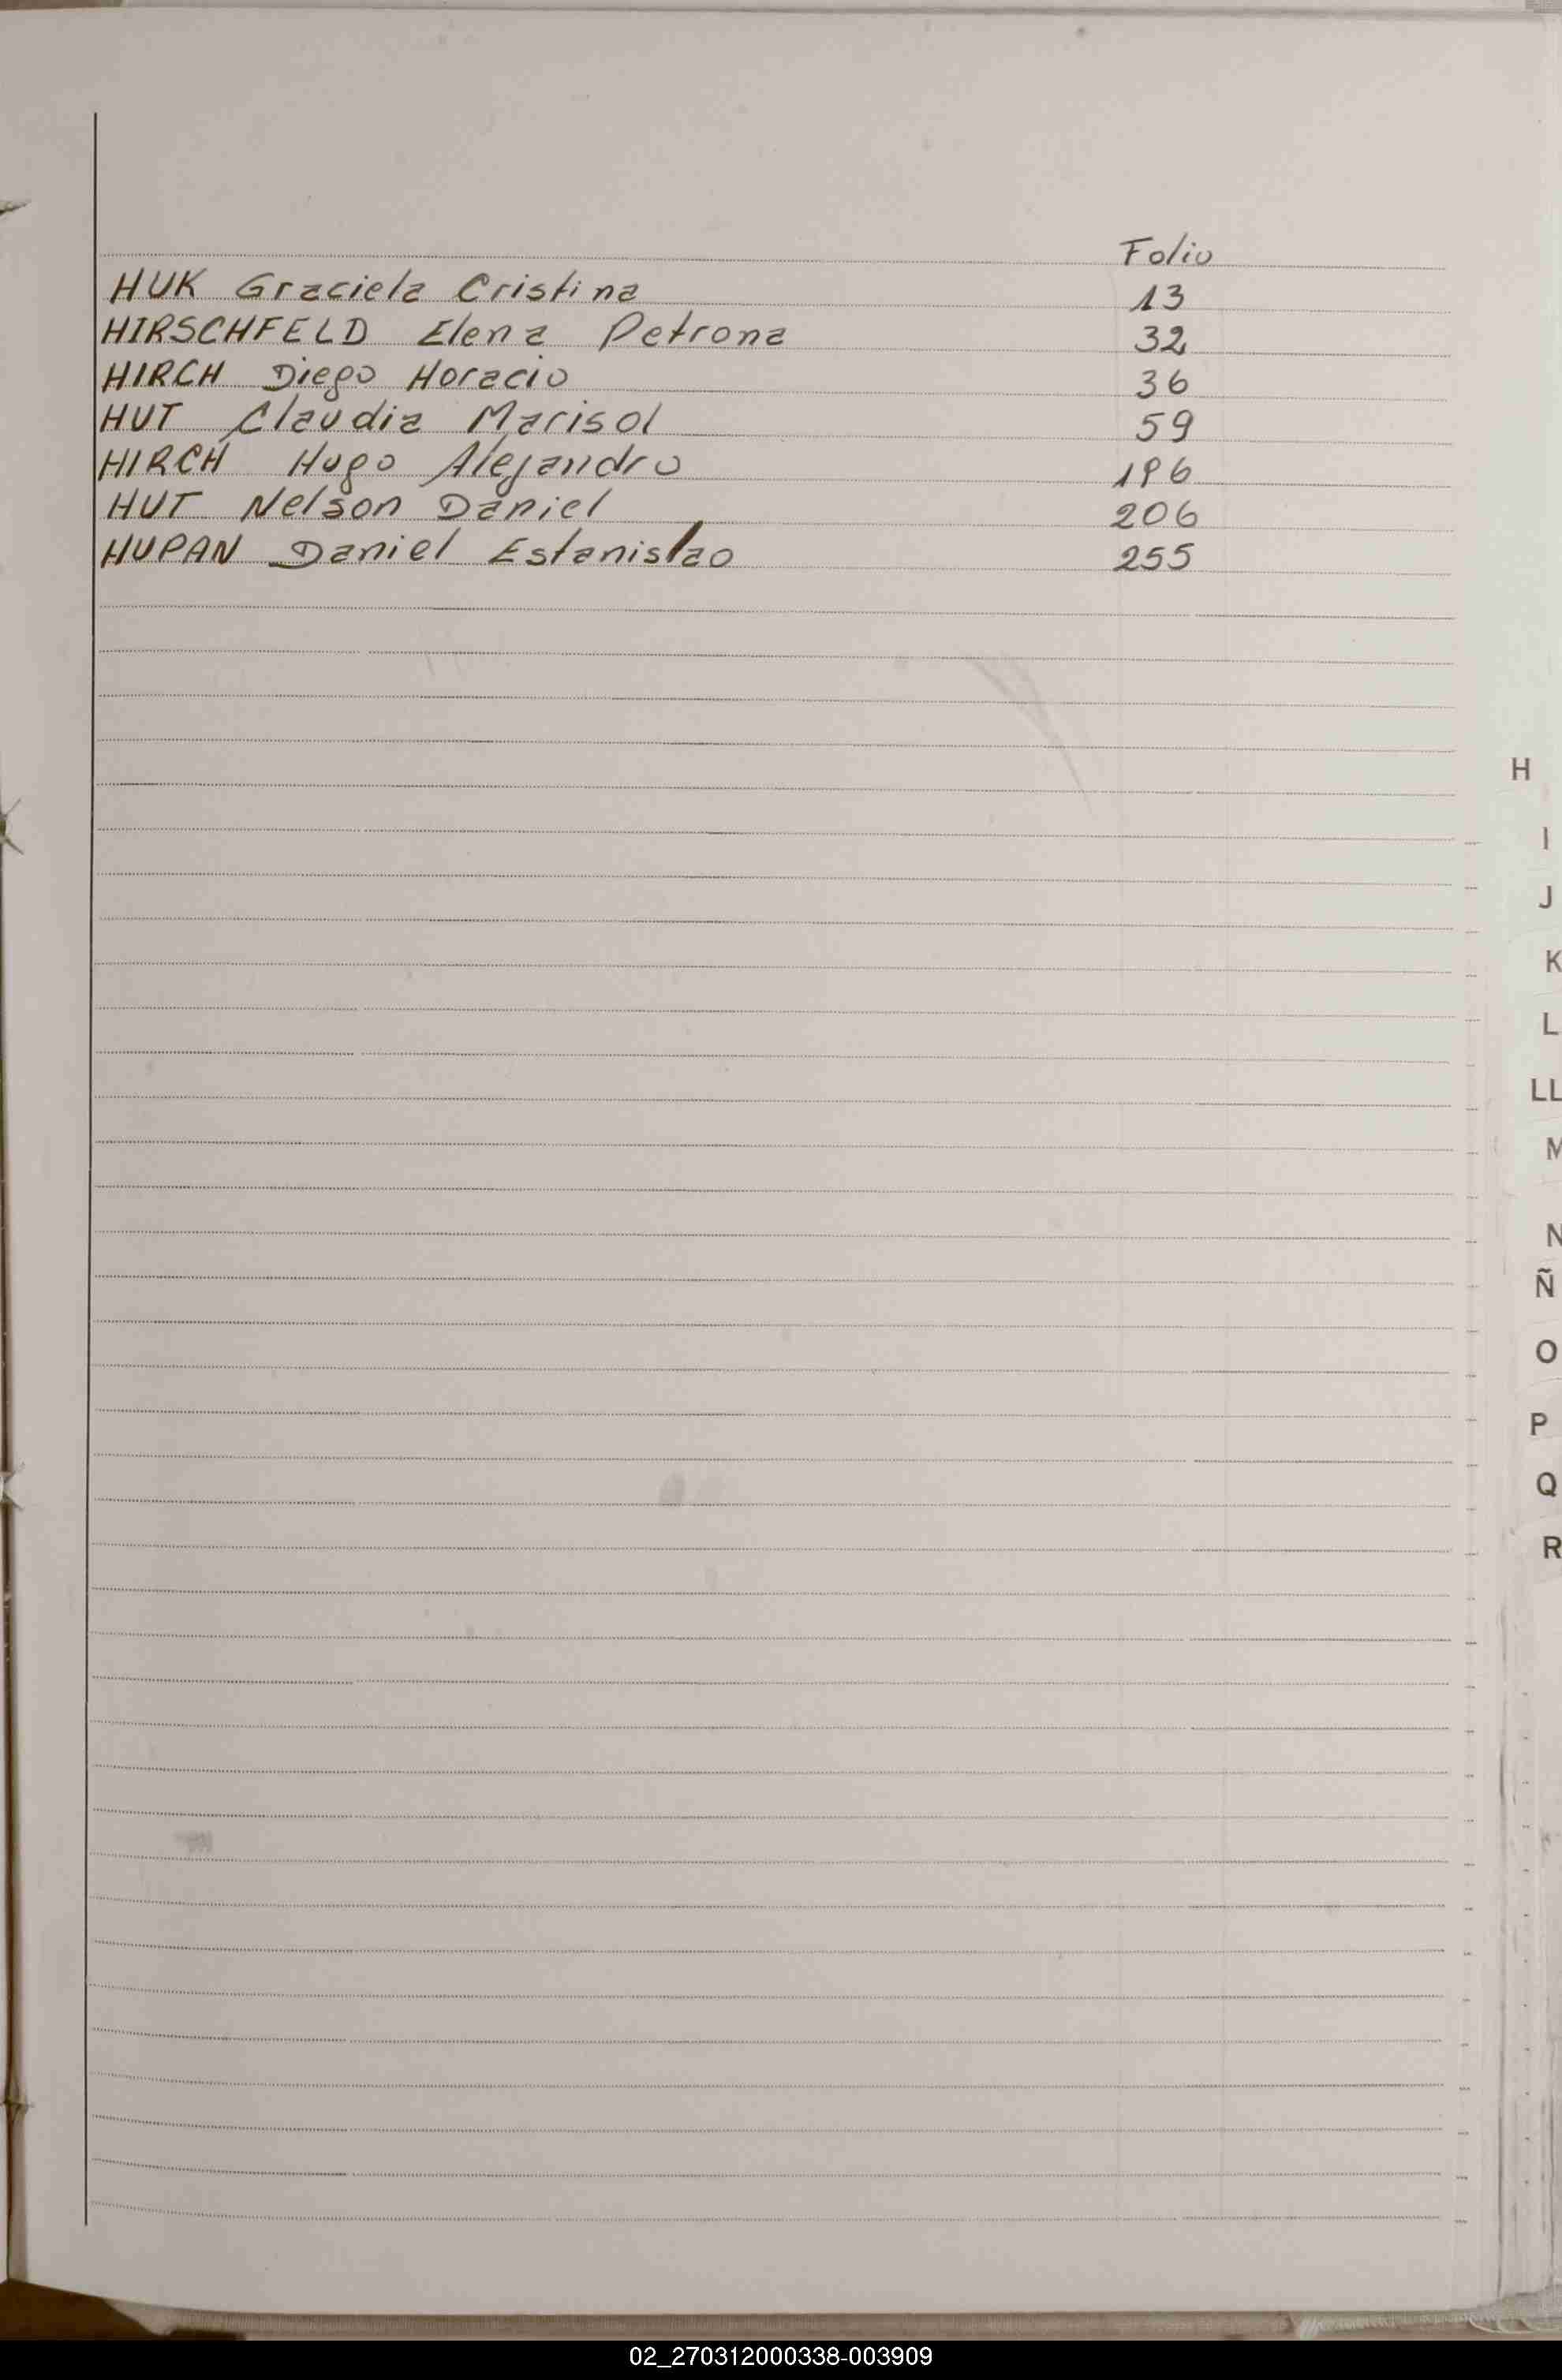 Folio
HUK Graciela Cristina 13
HIRSCHFELD Elena Petrona 32
HIRCH Diego Horacio 36
HUT Claudia Marisol 59
HIRCH Hugo Alejandro 196
HUT Nelson Daniel 206
HUPAN Daniel Estanislao 255
H
I
J
K
L
LL
M
N
Ñ
O
P
Q
R
02_270312000338-003909